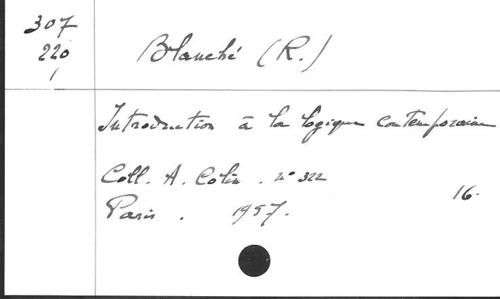 307
220
1
Blanché (R.)
Introduction à la logique contemporaine
Coll. A. Colin. n° 322
16.
Paris. 1957.